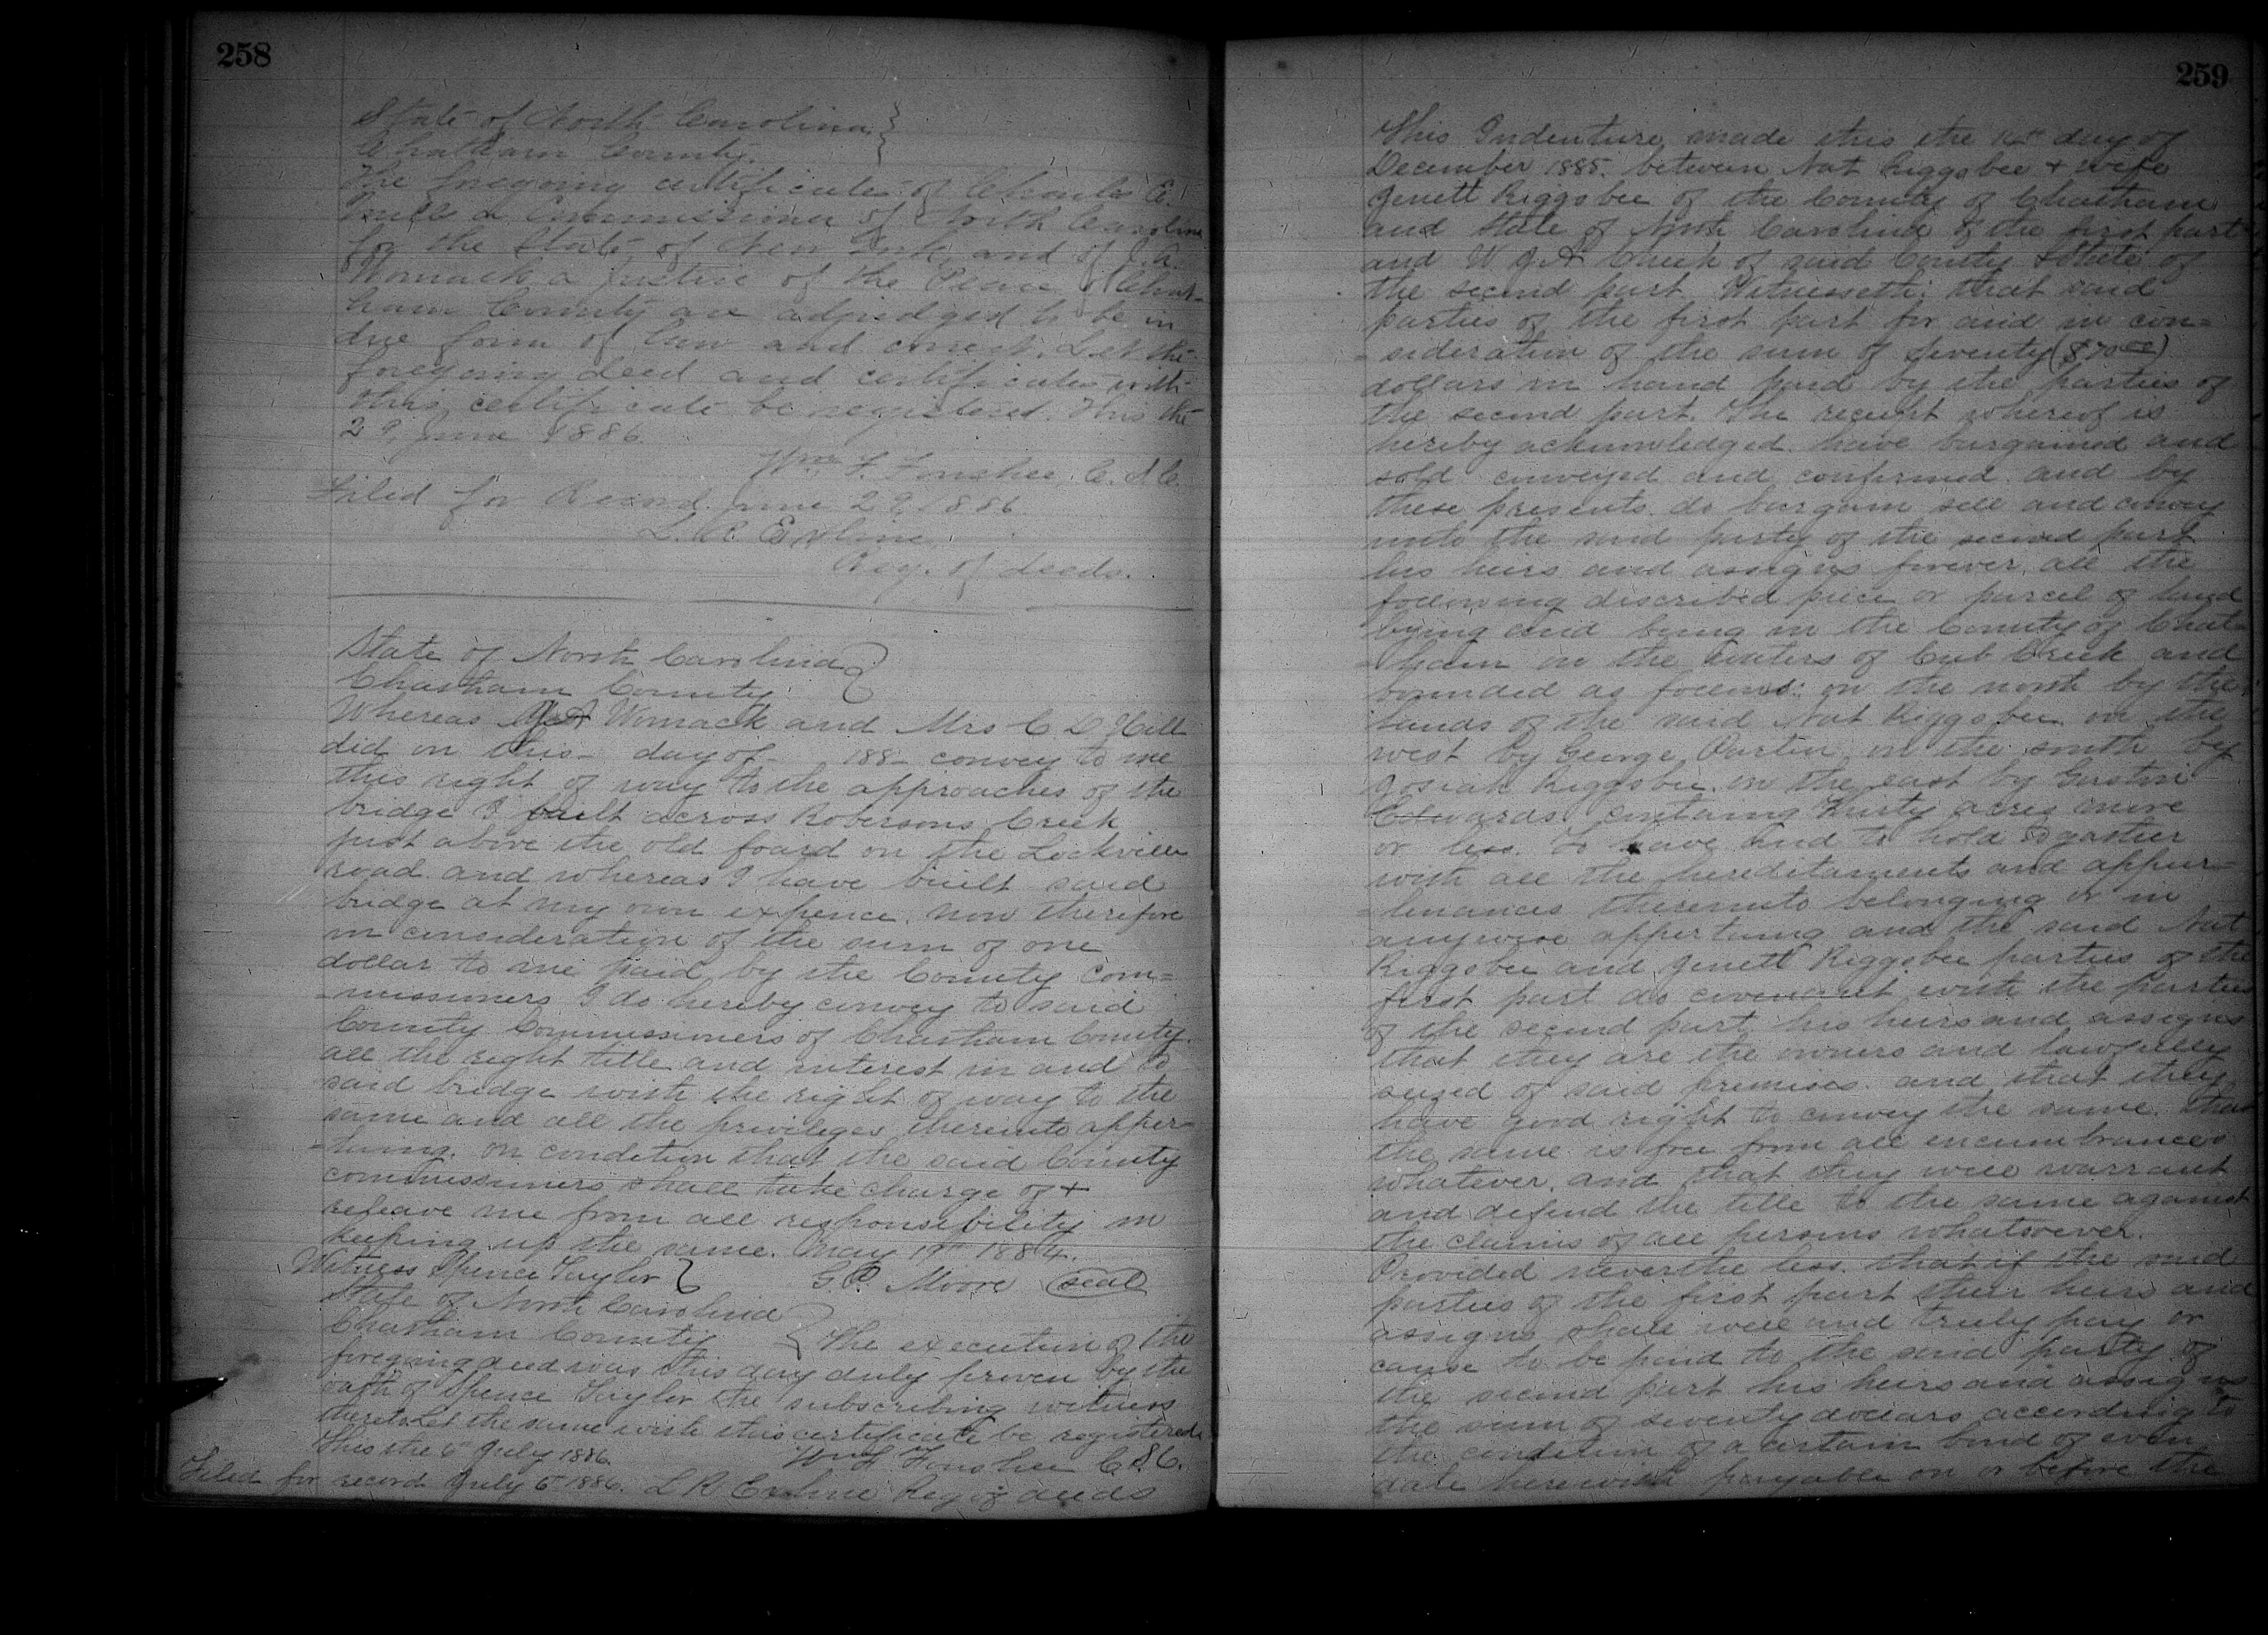 258
State of North Carolina
Chatham County.
The foregoing certificates of Charles E.
Mills a Commissioner of North Carolina
for the State of New York and of J. A.
Womack a Justice of the Peace of Chat-
ham County are adjudged to be in
due form of law and correct. Let the
foregoing deed and certificates with
this certificate be registered. This the
29, June 1886.
Wm. F. Foushee, C.S.C.
Filed for Record June 29, 1886.
L. R. Exline
Reg. of deeds.
State of North Carolina
Chatham County
Whereas Womack and Mrs C D Hill
did on this - day of - 188- convey to me
this right of way to the approaches of the
bridge I built across Robersons Creek
just above the old foard on the Lockville
road and whereas I have built said
bridge at my own expence. now therefore
in consideration of the sum of one
dollar to me paid by the County Com=
=missioners I do hereby convey to said
County Commissioners of Chatham County.
all the right title and interest in and to
said bridge with the right of way to the
same and all the privileges thereunto apper=
=taining. on condition that the said County
commissioners shall take charge of +
releave me from all responsibility in
keeping up the same. May 19th 1884.
Witness Spence Taylor G. R. Moore (seal)
State of North Carolina
Chatham County The execution of the
foregoing deed was this day duly proven by the
oath of Spence Taylor the subscribing witness
thereto Let the same with this certificate be registered.
This the 6th July 1886. Wm F Foushee C.S.C.
Filed for record July 6th 1886. L R Exline Reg of deeds
259
This Indenture made this the 14th day of
December 1885. between Nat Riggsbee + wife
Jenett Riggsbee of the County of Chatham
and State of North Carolina of the first part
and W J A Cheek of said County & State of
the second part Witnesseth: that said
parties of the first part for and in con=
=sideration of the sum of seventy ($70.00)
dollars in hand paid by the parties of
the second part. The receipt whereof is
hereby acknowledged. have bargained and
sold conveyed and confirmed. and by
these presents. do bargain sell and convey
unto the said party of the second part
his heirs and assigns forever. all the
following discribed piece or parcel of land
lying and being in the County of Chat=
=ham on the waters of Cub Creek and
bounded as follows: on the north by the
lands of the said Nat Riggsbee on the
west by George Partin on the south by
Josiah Riggsbee. on the east by Gaston
Edwards. containg Thirty acres more
or less. To have and to hold togather
with all the hereditaments and appur=
=tenances thereunto belonging or in
anywise appertaing and the said Nat
Riggsbee and Jenett Riggsbee parties of the
first part do covenant with the parties
of the second part his heirs and assigns
that they are the owners and lawfully
seized of said premises. and that they
have good right to convey the same. that
the same is free from all encumbrances
whatever. and that they will warrant
and defend the title to the same against
the claims of all persons whatsoever.
Provided neverthe less. that if the said
parties of the first part their heirs and
assigns shall well and truly pay or
cause to be paid to the said party of
the second part his heirs and assigns
the sum of seventy dollars according to
the condition of a certain bond of even
date herewith payable on or before the